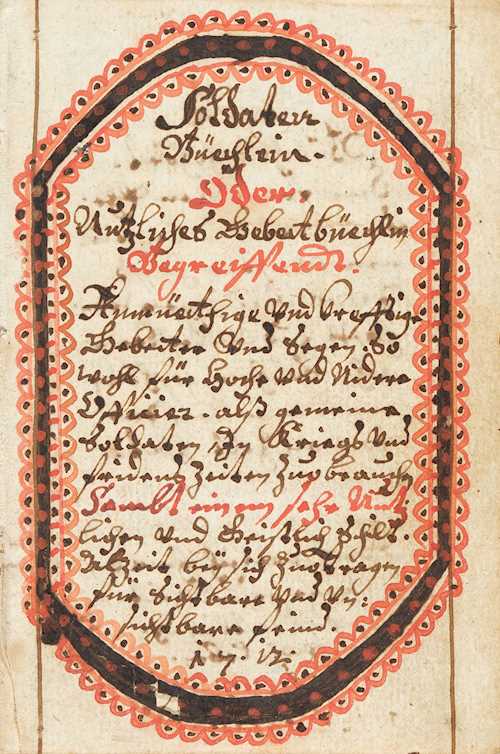 Soldaten
Büechlein.
Oder.
Nutzliches Gebettbüechlin
Begreiffendt.
Anmüethige Vnd Krefftige
Gebetter Vnd Segen. So
wohl für Hoche vnd Nidere
Officier. alß gemeine
Soldaten in Kriegs Vnd
fridens Zeiten Zuo brauchen
Sambt einem sehr Nutz
lichen vnd Geistlich Schilt.
Alzeit bey sich Zuo tragen
für Sichtbare Vnd Vn:
sichtbare feind.